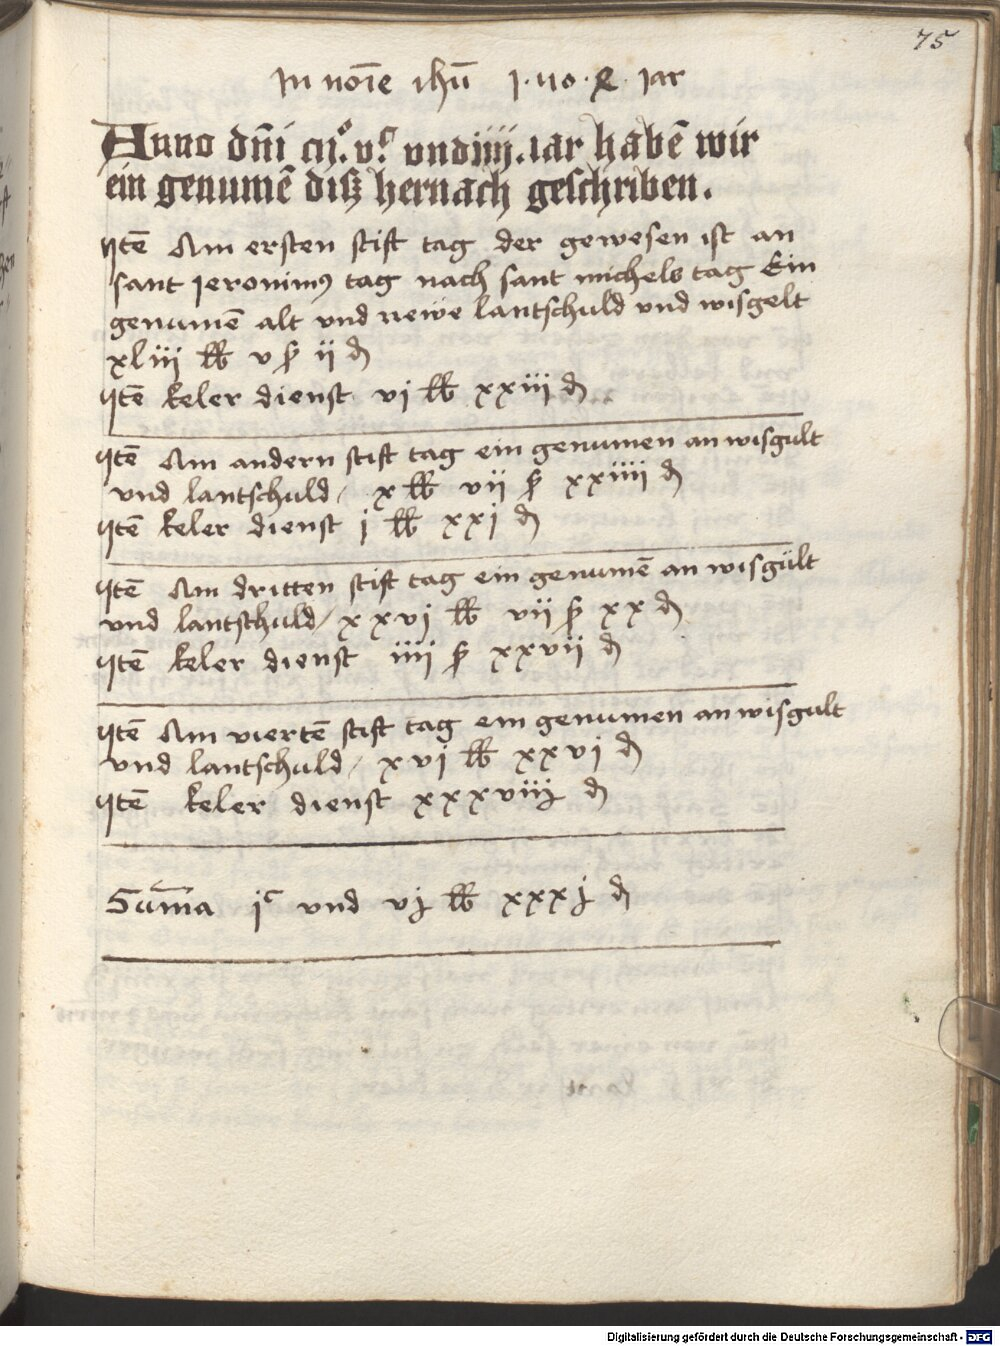 75
In nom̄e ihū 1·uo· jar
Anno dn̄i m°. vᶜ. vnd iiij. iar habē wir
ein genumē disz hernach geschriben.
Itē Am ersten stift tag der gewesen ist an
sant Jeronimꝰ tag nach sant michels tag Ein
genumē alt vnd newe lantschuld vnd wisgelt
xliij lb v ß ij ₰
Itē keler dienst vj lb xxiij ₰
Itē Am andern stift tag ein genumen an wisgult
vnd lantschuld / x lb vij ß xxiiij ₰
Itē keler dienst j lb xxj ₰
Itē Am dritten stift tag ein genumē an wisgült
vnd lantschuld / xxvj lb vij ß xx ₰
Itē keler dienst iiij ß xxvij ₰
Itē Am viertē stift tag ein genumen an wisgult
vnd lantschuld / xvj lb xxvj ₰
Itē keler dienst xxxviij ₰
Sum̄a jᶜ vnd vj lb xxxj ₰
Digitalisierung gefördert durch die Deutsche Forschungsgemeinschaft - DFG